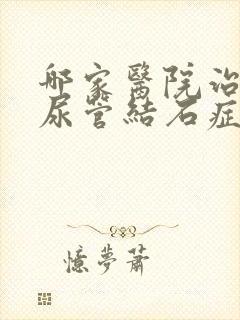 哪家醫院治
尿管結石症
憶夢蕭